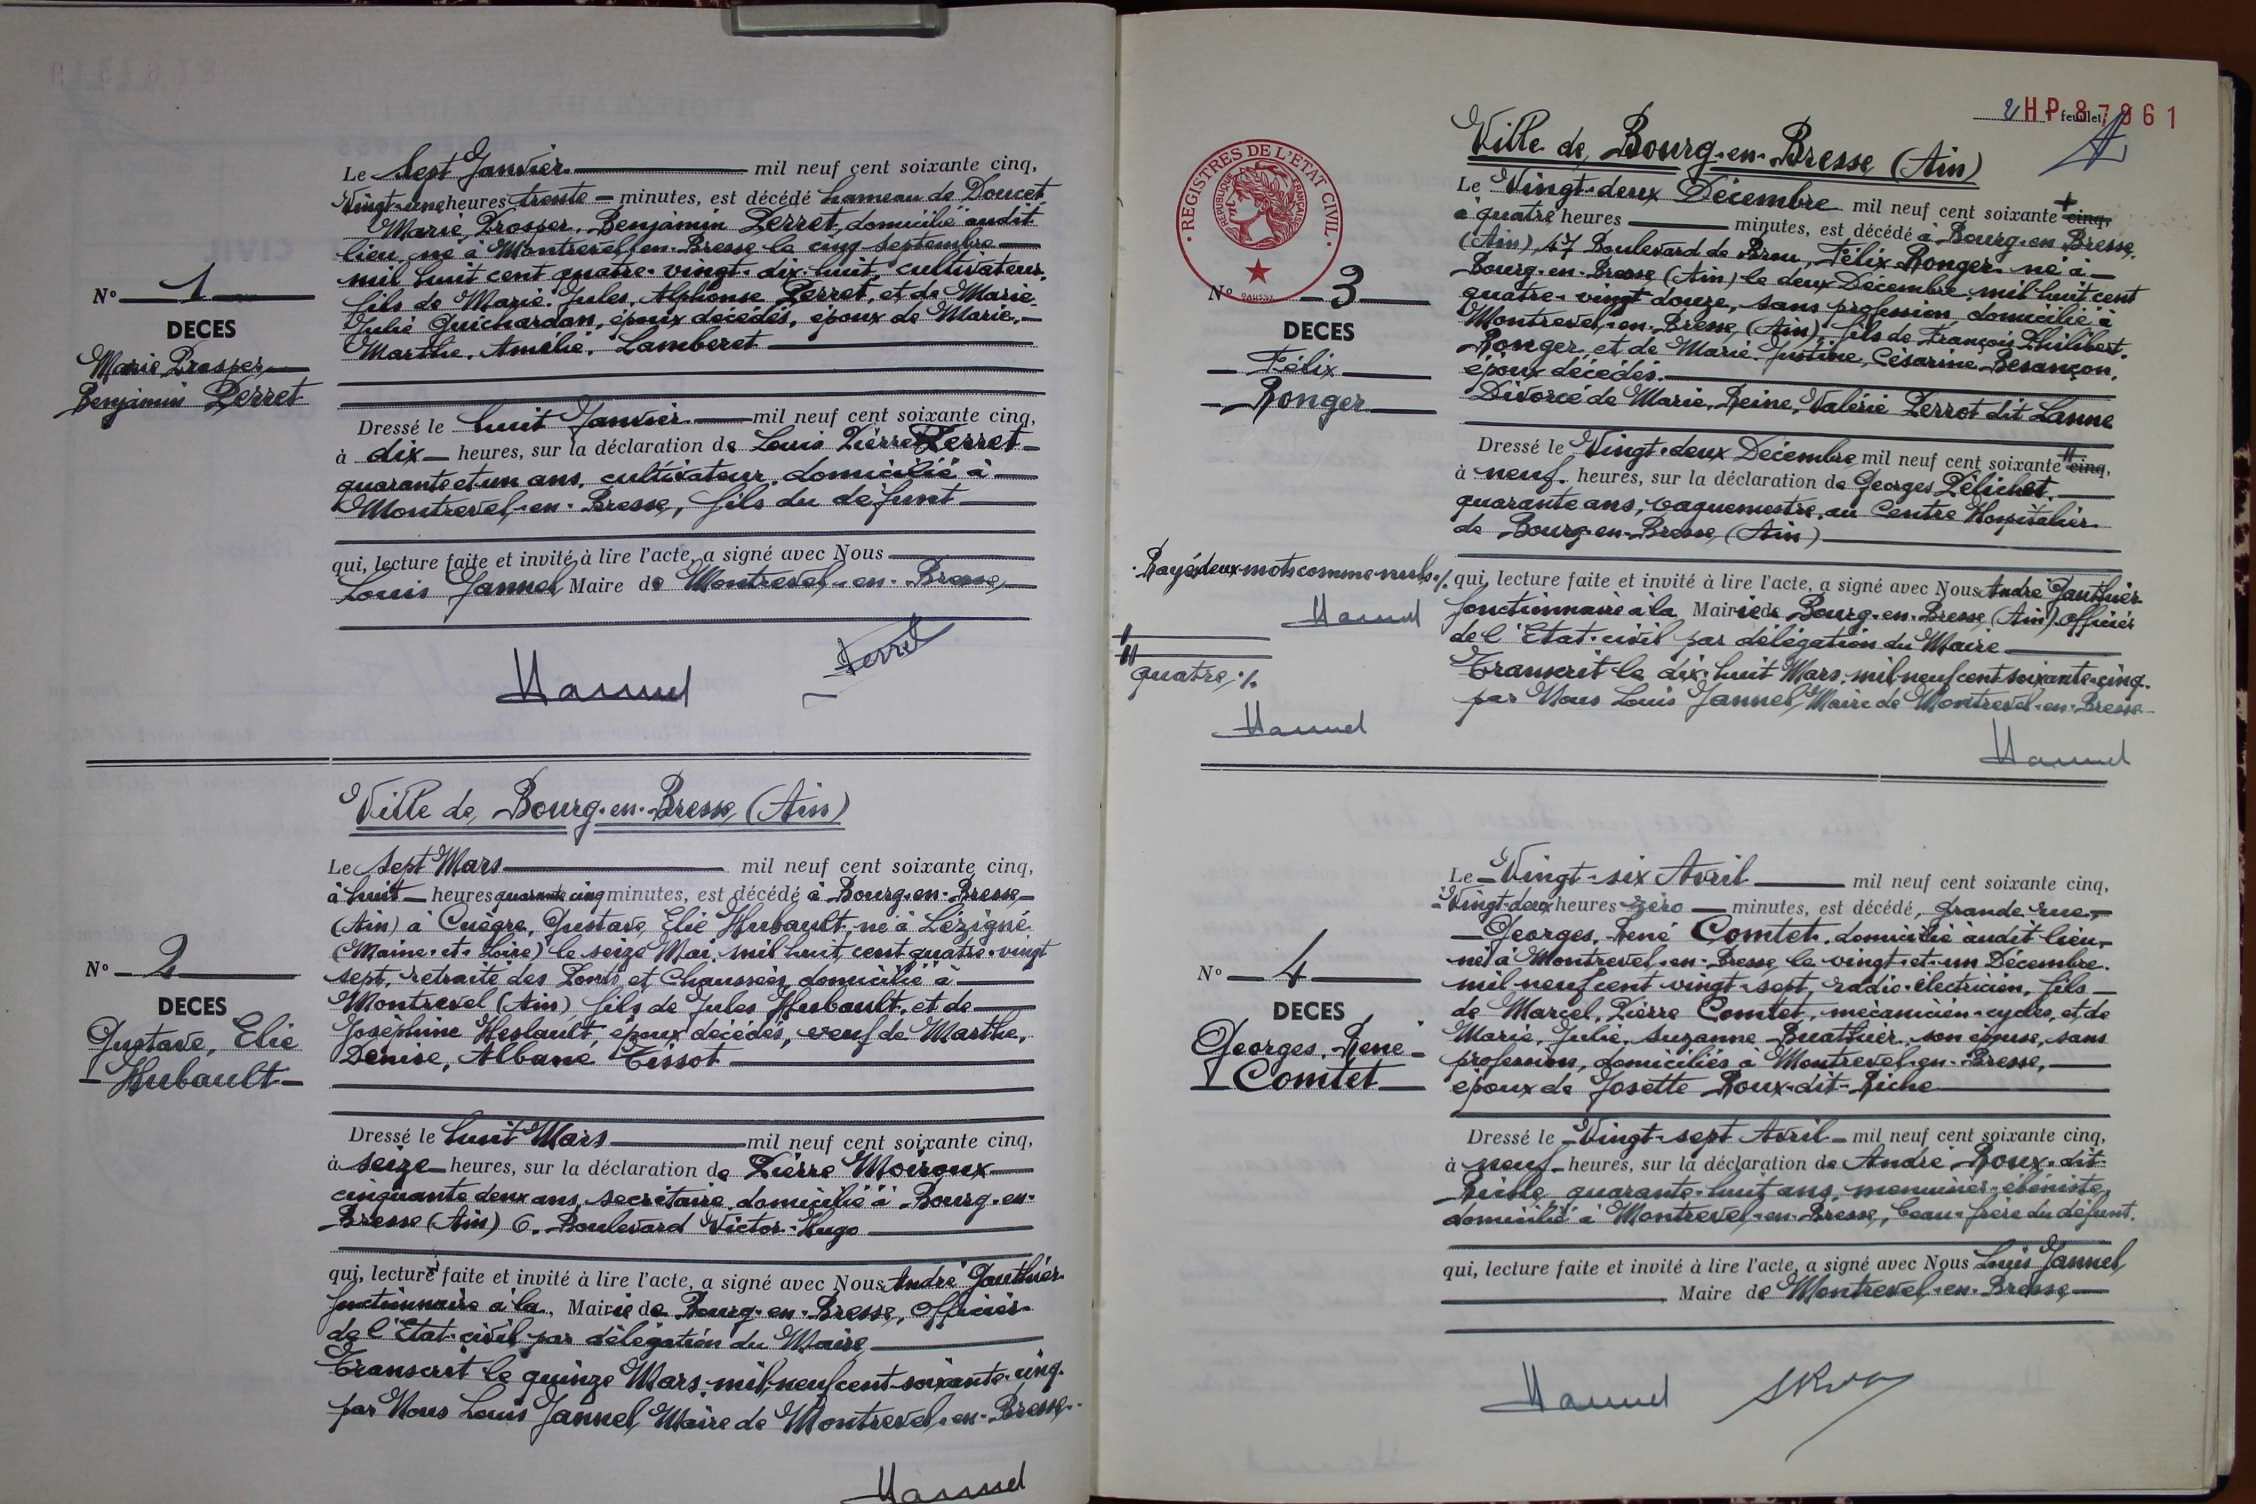 Le Sept Janvier mil neuf cent soixante cinq,
Vingt-une heures trente minutes, est décédé hameau de Doucet
Marie, Prosper, Benjamin Perret, domicilié audit
lieu, né à Montrevel-en-Bresse le cinq septembre
mil huit cent quatre-vingt-dix-huit, cultivateur,
fils de Marie, Jules, Alphonse Perret, et de Marie,
Julie Guichardan, époux décédés, époux de Marie,
Marthe, Amélie, Lamberet
N° 1
DECES
Marie Prosper
Benjamin Perret
Dressé le huit Janvier mil neuf cent soixante cinq,
à dix heures, sur la déclaration de Louis Pierre Perret
quarante et un ans, cultivateur, domicilié à
Montrevel-en-Bresse, fils du défunt
qui, lecture faite et invité à lire l'acte, a signé avec Nous
Louis Jannel Maire de Montrevel-en-Bresse
Jannel Perret
Ville de Bourg-en-Bresse (Ain)
Le sept Mars mil neuf cent soixante cinq,
à huit heures quarante cinq minutes, est décédé à Bourg-en-Bresse
(Ain) à Cuègre, Gustave, Elie Hubault, né à Lézigné
(Maine-et-Loire) le seize Mai mil huit cent quatre-vingt
sept, retraité des Ponts et Chaussées, domicilié à
Montrevel (Ain), fils de Jules Hubault, et de
Joséphine Heslault, époux décédés, veuf de Marthe,
Denise, Albane Tissot
N° 2
DECES
Gustave, Elie
Hubault
Dressé le huit Mars mil neuf cent soixante cinq,
à seize heures, sur la déclaration de Pierre Moiroux
cinquante deux ans, secrétaire, domicilié à Bourg-en-
Bresse (Ain) 6, Boulevard Victor-Hugo
qui, lecture faite et invité à lire l'acte, a signé avec Nous André Gauthier
fonctionnaire à la Mairie de Bourg-en-Bresse, officier
de l'Etat-civil par délégation du Maire
Transcrit le quinze Mars mil neuf cent soixante-cinq
par Nous Louis Jannel, Maire de Montrevel-en-Bresse
Jannel
2 feuillet
HP 87961
REGISTRES DE L'ETAT CIVIL
REPUBLIQUE FRANÇAISE
Ville de Bourg-en-Bresse (Ain)
Le Vingt-deux Décembre mil neuf cent soixante + cinq,
à quatre heures minutes, est décédé à Bourg-en-Bresse
(Ain) 47 Boulevard de Brou, Félix Ronger né à
Bourg-en-Bresse (Ain) le deux Décembre mil huit cent
quatre-vingt douze, sans profession, domicilié à
Montrevel-en-Bresse (Ain), fils de François Philibert
Ronger et de Marie, Justine, Césarine Besançon,
époux décédés.
Divorcé de Marie, Reine, Valérie Perrot dit Lanne
N° 3
DECES
Félix
Ronger
Dressé le Vingt-deux Décembre mil neuf cent soixante cinq,
à neuf heures, sur la déclaration de Georges Pélichet,
quarante ans, vaguemestre au Centre Hospitalier
de Bourg-en-Bresse (Ain)
Rayés deux mots comme nuls ./.
Jannel
quatre ./.
Jannel
qui, lecture faite et invité à lire l'acte, a signé avec Nous André Gauthier
fonctionnaire à la Mairie de Bourg-en-Bresse (Ain) officier
de l'Etat-civil par délégation du Maire
Transcrit le dix-huit Mars mil neuf cent soixante-cinq
par Nous Louis Jannel, Maire de Montrevel-en-Bresse
Jannel
Le Vingt-six Avril mil neuf cent soixante cinq,
à Vingt-deux heures zéro minutes, est décédé, grande rue,
Georges, René Comtet, domicilié audit lieu,
né à Montrevel-en-Bresse le vingt-et-un Décembre
mil neuf cent vingt-sept, radio-électricien, fils
de Marcel, Pierre Comtet, mécanicien-cycles, et de
Marie, Julie, Suzanne Buathier, son épouse, sans
profession, domiciliés à Montrevel-en-Bresse,
époux de Josette Roux-dit-Riche
N° 4
DECES
Georges, René
Comtet
Dressé le Vingt-sept Avril mil neuf cent soixante cinq,
à neuf heures, sur la déclaration de André Roux-dit-
Riche, quarante-huit ans, menuisier-ébéniste,
domicilié à Montrevel-en-Bresse, beau-frère du défunt.
qui, lecture faite et invité à lire l'acte, a signé avec Nous Louis Jannel
Maire de Montrevel-en-Bresse
Jannel